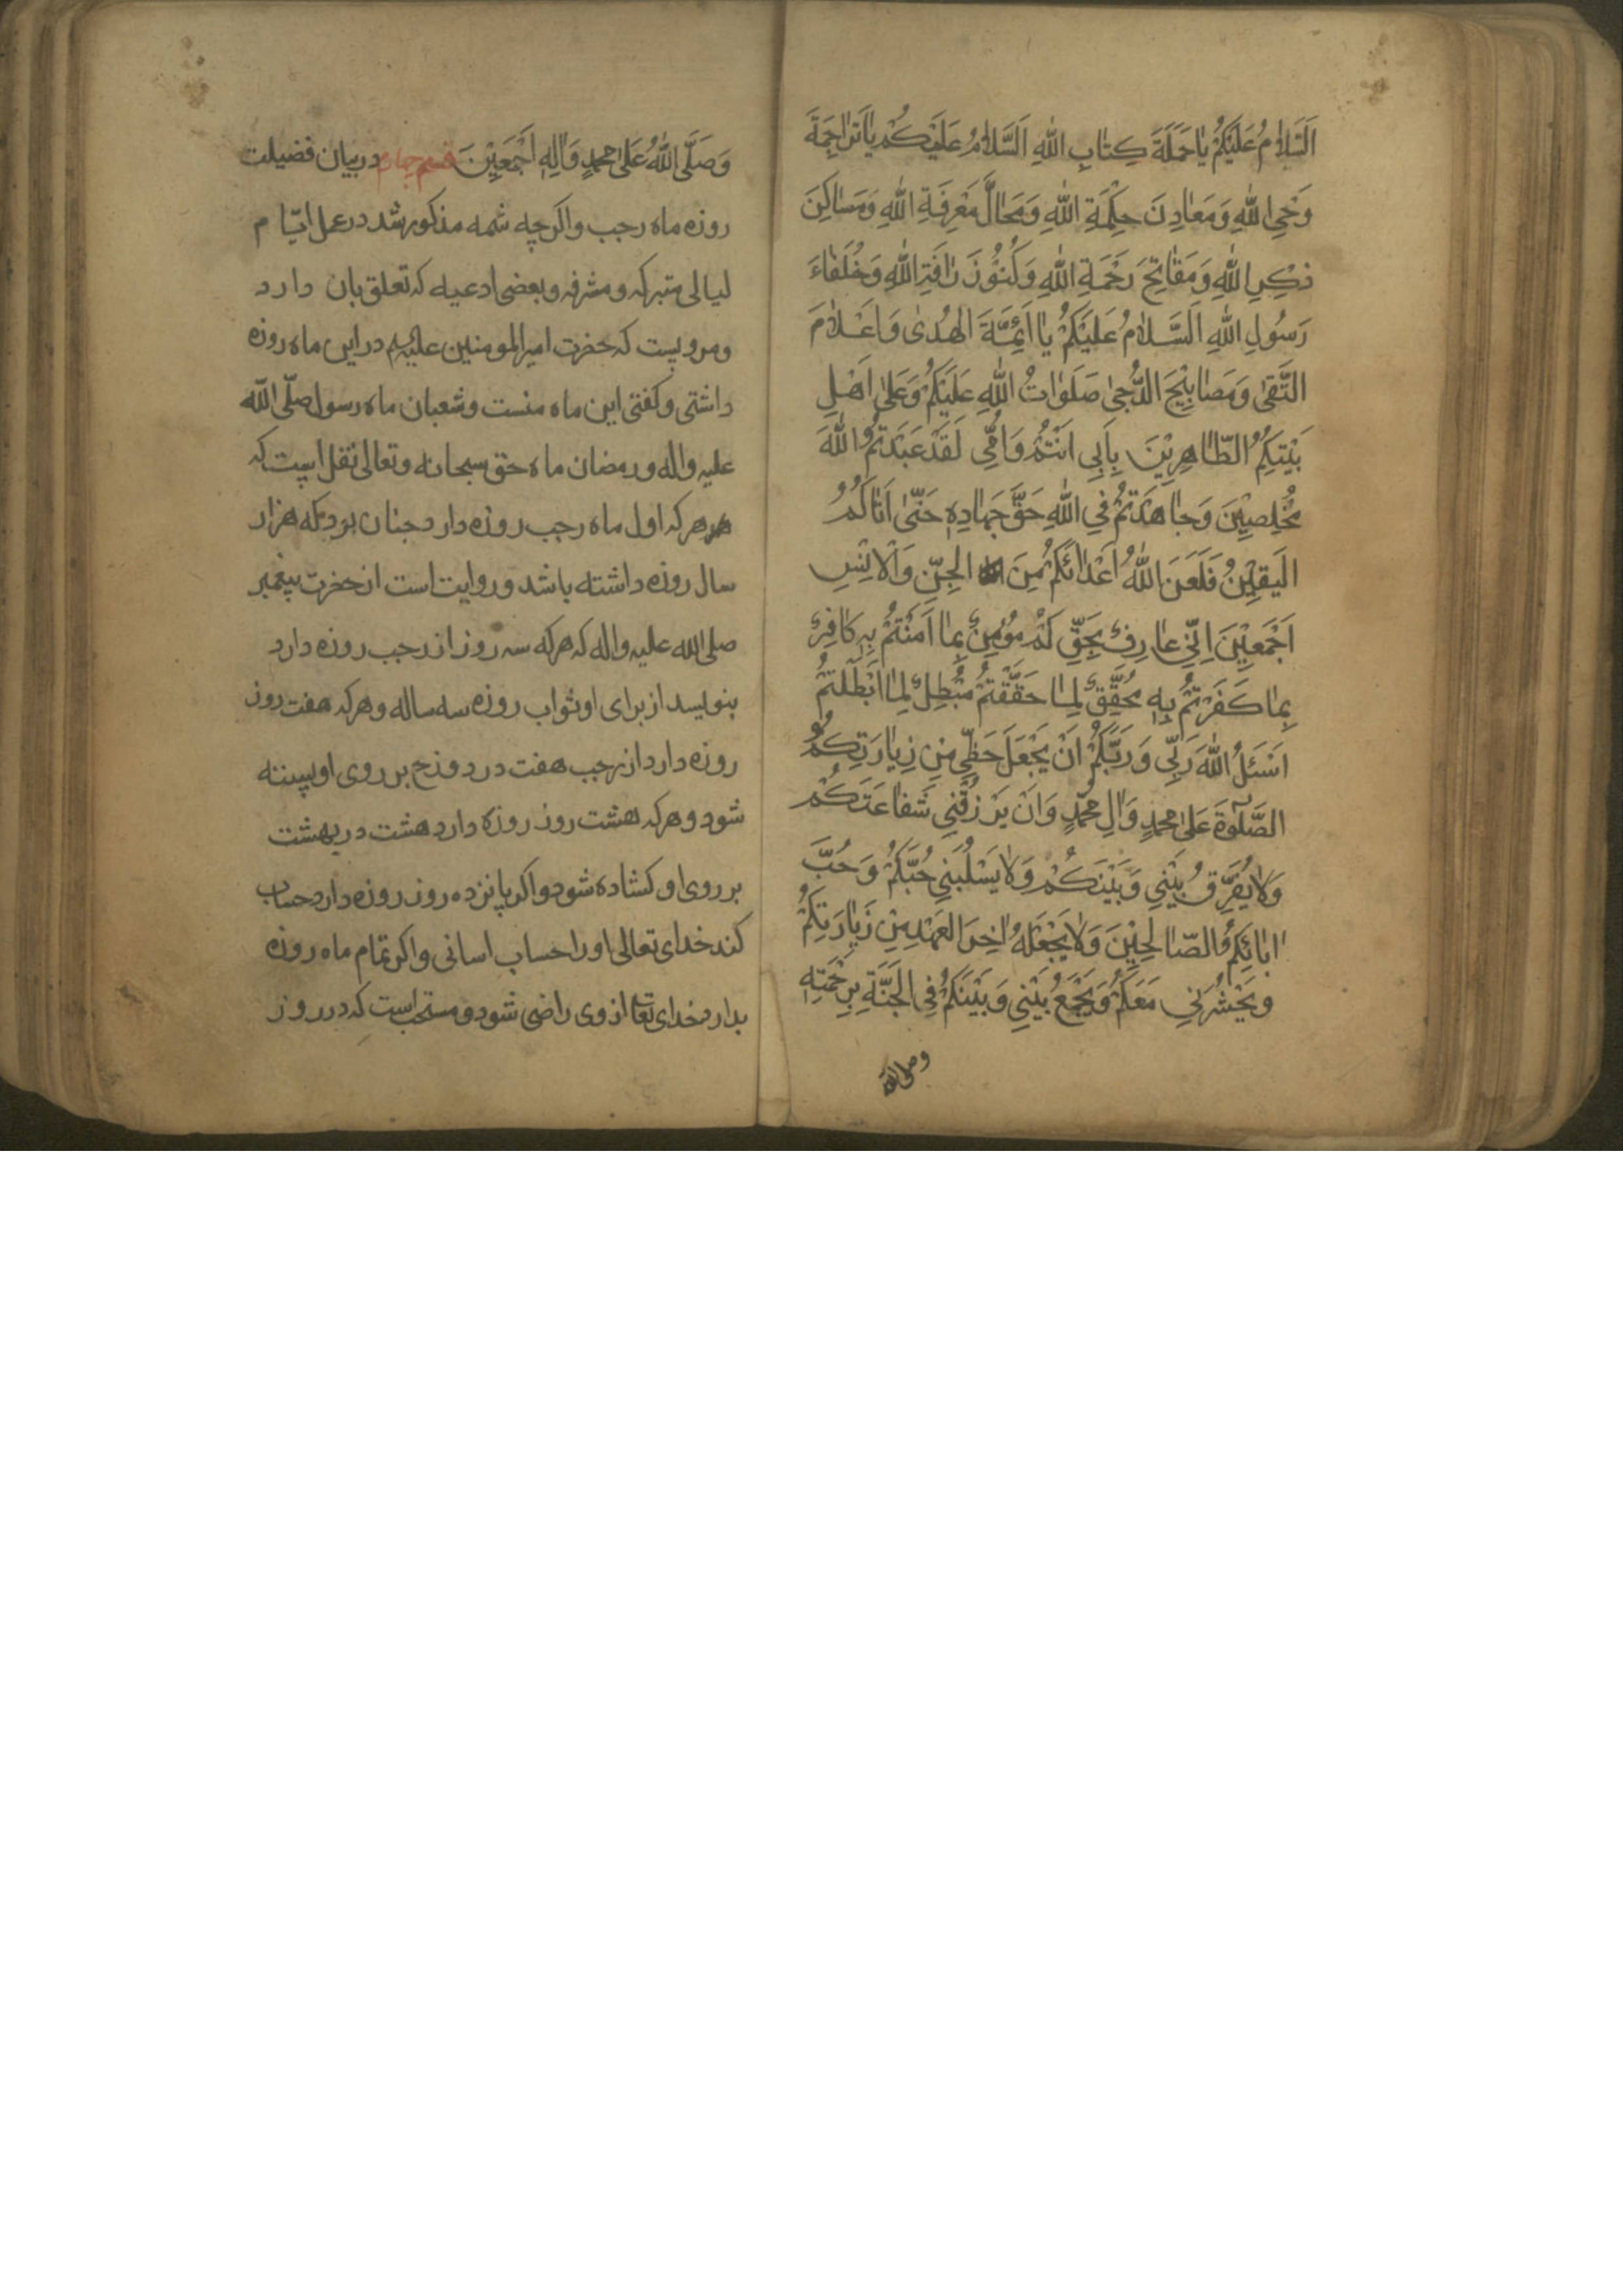 اَلسَّلامُ عَلَيْكُمْ يا حَمَلَةَ كِتابِ اللهِ اَلسَّلامُ عَلَيْكُمْ يا تَراجِمَةَ
وَحْيِ اللهِ وَمَعادِنَ حِكْمَةِ اللهِ وَمَحالَّ مَعْرِفَةِ اللهِ وَمَساكِنَ
ذِكْرِ اللهِ وَمَفاتِحَ رَحْمَةِ اللهِ وَكُنُوزَ رَافَةِ اللهِ وَخُلَفاءَ
رَسُولِ اللهِ اَلسَّلامُ عَلَيْكُمْ يا اَئِمَّةَ الهُدى وَاَعْلامَ
التَّقى وَمَصابِيْحَ الدُّجى صَلَواتُ اللهِ عَلَيْكُمْ وَعَلى اَهْلِ
بَيْتِكِمُ الطّاهِرِيْنَ بِاَبِي اَنْتُمْ وَاُمِّي لَقَدْ عَبَدْتُمُ اللهَ
مُخْلِصِيْنَ وَجاهَدْتُمْ فِي اللهِ حَقَّ جَهادِهِ حَتّى اَتاكُمُ
الْيَقِيْنُ فَلَعَنَ اللهُ اَعْدائَكُمْ مِنَ الْجِنِّ وَالْاِنْسِ
اَجْمَعِيْنَ اِنِّي عارِفٌ بِحَقِّكُمْ مُؤْمِنٌ بِما اٰمَنْتُمْ بِهِ كافِرٌ
بِما كَفَرْتُمْ بِهِ مُحَقِّقٌ لِما حَقَّقْتُمْ مُبْطِلٌ لِما اَبْطَلْتُمْ
اَسْئَلُ اللهَ رَبِّي وَرَبَّكُمْ اَنْ يَجْعَلَ حَظِّي مِنْ زِيارَتِكُمُ
الصَّلٰوةَ عَلى مُحمّدٍ وَالِ مُحمّدٍ وَاَنْ يَرْزُقَنِي شَفاعَتَكُمْ
وَلايُفَرِّقُ بَيْنِي وَبَيْنَكُمْ وَلايَسْلُبَنِي حُبَّكُمْ وَحُبَّ
ابائِكِمُ الصّالِحِيْنَ وَلايَجْعَلَهُ اخِرَ العَهْدِ مِنْ زَيارَتِكُمْ
وَيَحْشُرَنِي مَعَكُمْ وَيَجْمَعُ بَيْنِي وَبَيْنَكُمْ فِي الجَنَّةِ بِرَحْمَتِهِ
وصلى الله
وَصَلَّى اللهُ عَلى مُحمّدٍ وَالِهِ اَجْمَعِيْنَ قسم چهارم در بيان فضيلت
روزه ماه رجب واكرچه شمه مذكور شد در عمل ايّام
ليالى متبركه ومشرفه وبعضى ادعيه كه تعلق بان دارد
ومرويست كه حضرت اميرالمومنين عليه السلم در اين ماه روزه
داشتى وكفتى اين ماه منست وشعبان ماه رسول صلّى الله
عليه واله ورمضان ماه حق سبحانه وتعالى نقل است كه
هر هركه اول ماه رجب روزه دارد جنان بود كه هزار
سال روزه داشته باشد وروايت است از حضرت پيغمبر
صلى الله عليه واله كه هركه سه روز از رجب روزه دارد
بنويسد از براى او ثواب روزه سه ساله وهركه هفت روز
روزه دارد از رجب هفت در دوزخ بر روى او بسته
شود وهركه هشت روز روزه دارد هشت در بهشت
بر روى او كشاده شود واكر پانزده روز روزه دارد حساب
كند خداى تعالى او را حساب اسانى واكر تمام ماه روزه
بدارد خداى تعا از وى راضى شود ومستحب است كه در روز